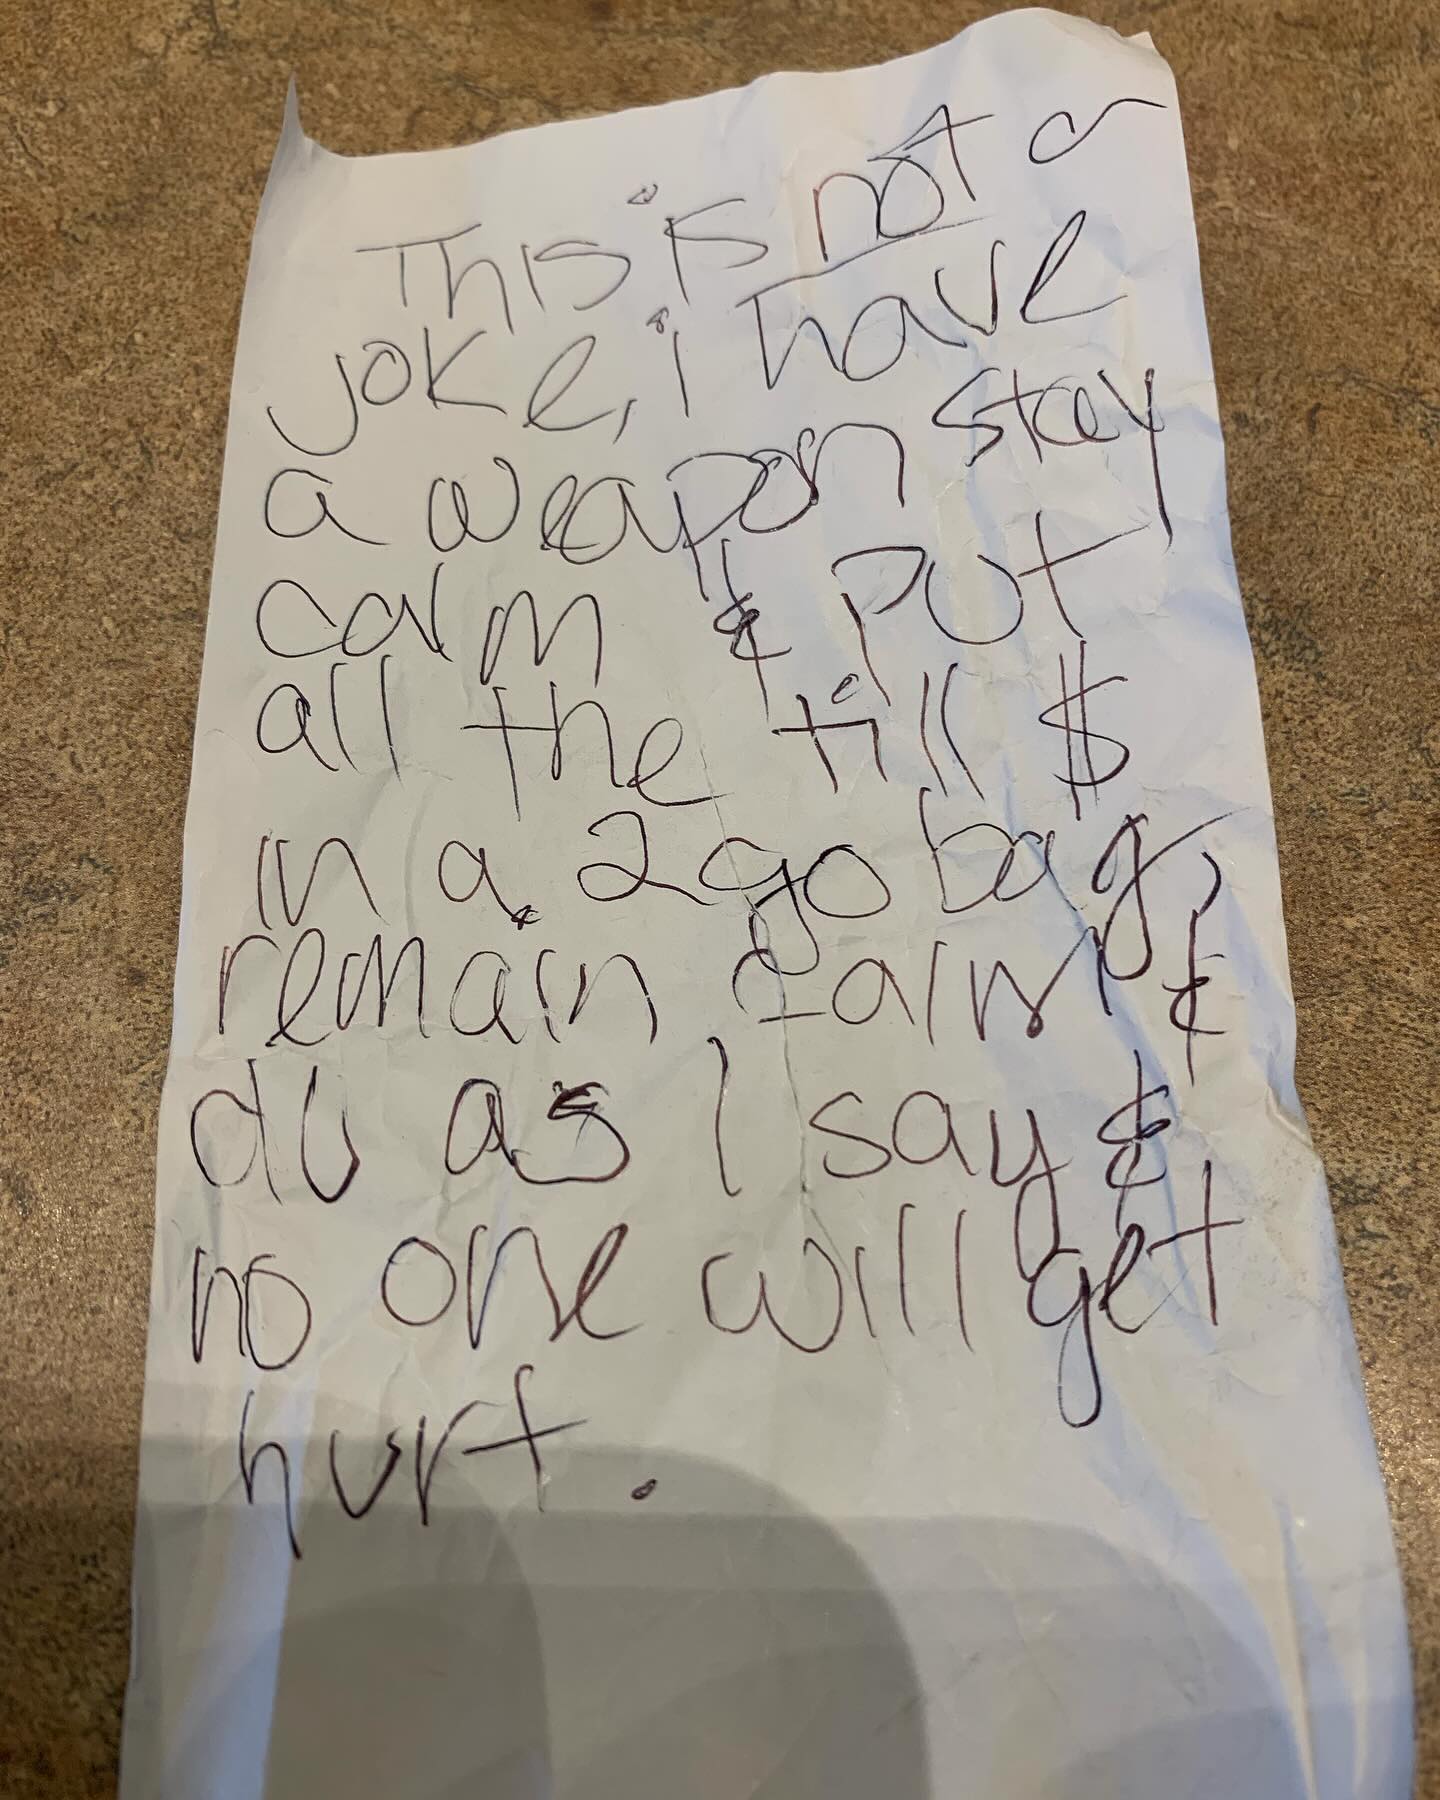 This is not a
joke, i have
a weapon stay
calm & put
all the till $
in a 2 go bag,
remain calm &
do as I say &
no one will get
hurt.